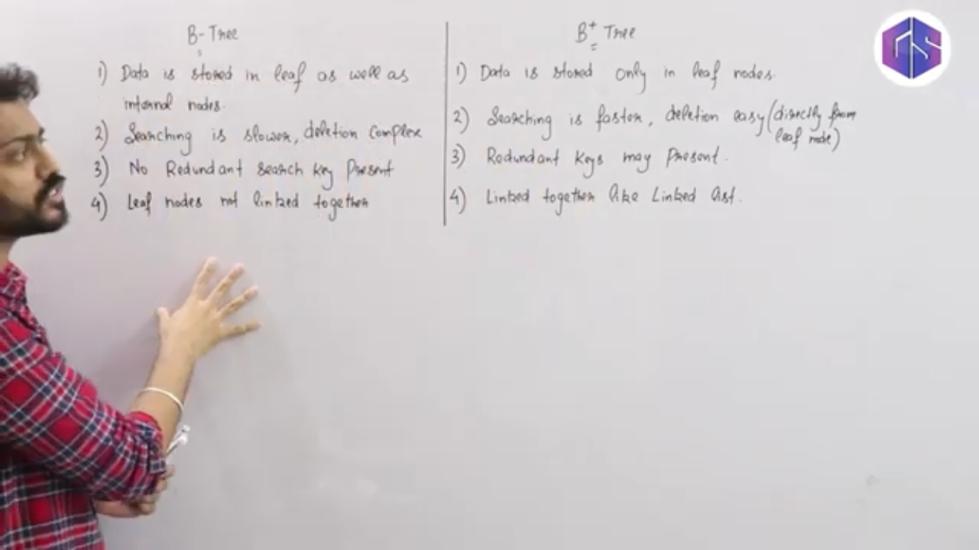 B-Tree
1) Data is stored in leaf as well as
internal nodes.
2) Searching is slower, deletion complex
3) No Redundant search key present
4) Leaf nodes not linked together
B+ Tree
1) Data is stored only in leaf nodes.
2) Searching is faster, deletion easy (directly from
leaf node)
3) Redundant keys may present.
4) Linked together like linked list.
GS